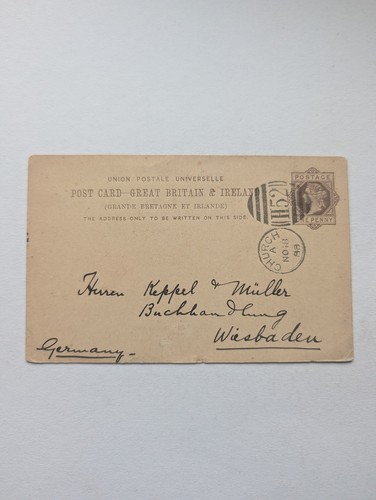 UNION POSTALE UNIVERSELLE
POST CARD–GREAT BRITAIN & IRELAND
(GRANDE BRETAGNE ET IRLANDE)
THE ADDRESS ONLY TO BE WRITTEN ON THIS SIDE.
POSTAGE
ONE PENNY
H52
CHURCH
A
NO 18
88
Herren Keppel & Müller
Buchhandlung
Wiesbaden
Germany